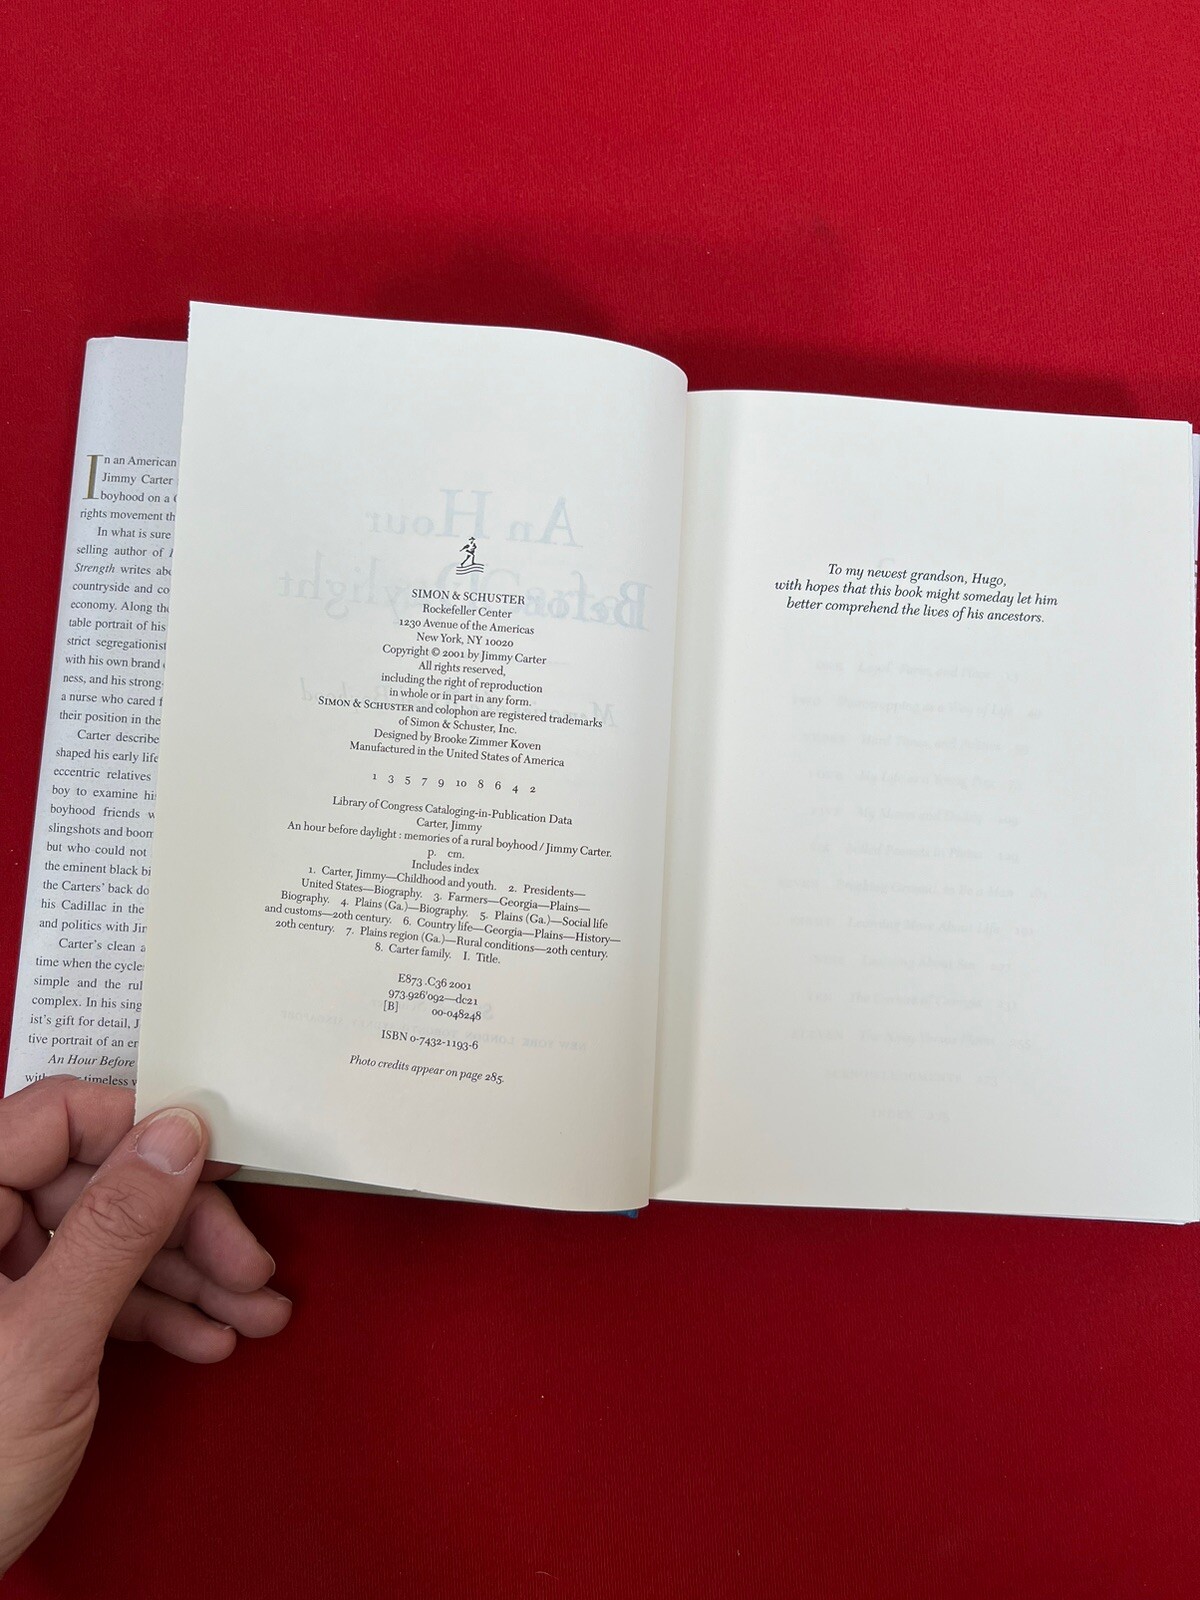 In an American
Jimmy Carter
boyhood on a
rights movement th
In what is sure
selling author of
Strength writes abo
countryside and co
economy. Along the
table portrait of his
strict segregationist
with his own brand
ness, and his strong-
a nurse who cared f
their position in the
Carter describe
shaped his early life
eccentric relatives
boy to examine his
boyhood friends w
slingshots and boom
but who could not
the eminent black bi
the Carters' back do
his Cadillac in the
and politics with Jim
Carter's clean a
time when the cycle
simple and the rul
complex. In his sing
ist's gift for detail, J
tive portrait of an er
An Hour Before
timeless
An Hour
Before Daylight
SIMON & SCHUSTER
Rockefeller Center
1230 Avenue of the Americas
New York, NY 10020
Copyright © 2001 by Jimmy Carter
All rights reserved,
including the right of reproduction
in whole or in part in any form.
SIMON & SCHUSTER and colophon are registered trademarks
of Simon & Schuster, Inc.
Designed by Brooke Zimmer Koven
Manufactured in the United States of America
1 3 5 7 9 10 8 6 4 2
Library of Congress Cataloging-in-Publication Data
Carter, Jimmy
An hour before daylight : memories of a rural boyhood / Jimmy Carter.
p. cm.
Includes index
1. Carter, Jimmy—Childhood and youth. 2. Presidents—
United States—Biography. 3. Farmers—Georgia—Plains—
Biography. 4. Plains (Ga.)—Biography. 5. Plains (Ga.)—Social life
and customs—20th century. 6. Country life—Georgia—Plains—History—
20th century. 7. Plains region (Ga.)—Rural conditions—20th century.
8. Carter family. I. Title.
E873 .C36 2001
973.926'092—dc21
[B] 00-048248
ISBN 0-7432-1193-6
Photo credits appear on page 285.
To my newest grandson, Hugo,
with hopes that this book might someday let him
better comprehend the lives of his ancestors.